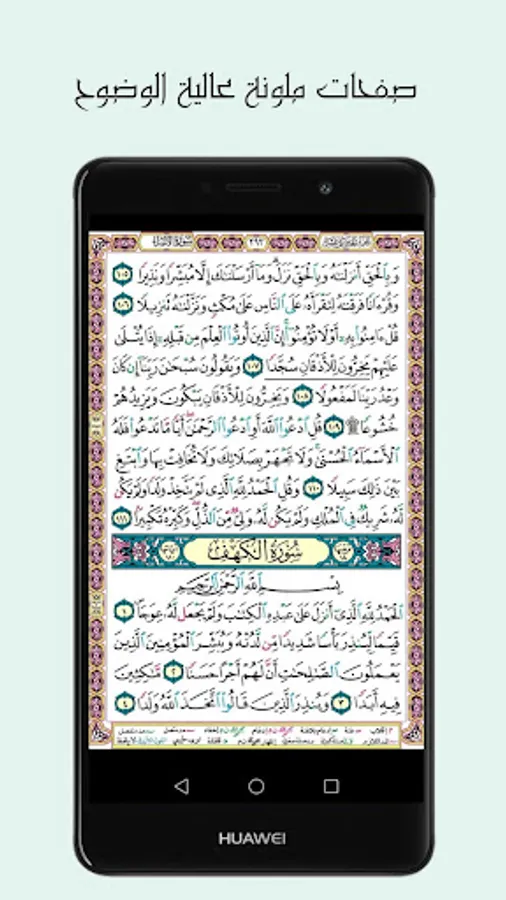 صفحات ملونة عالية الوضوح
٢٩٣
وَبِالْحَقِّ أَنزَلْنَاهُ وَبِالْحَقِّ نَزَلَ وَمَا أَرْسَلْنَاكَ إِلَّا مُبَشِّرًا وَنَذِيرًا ١٠٥
وَقُرْءَانًا فَرَقْنَاهُ لِتَقْرَأَهُ عَلَى النَّاسِ عَلَىٰ مُكْثٍ وَنَزَّلْنَاهُ تَنزِيلًا ١٠٦
قُلْ ءَامِنُوا بِهِ أَوْ لَا تُؤْمِنُوا إِنَّ الَّذِينَ أُوتُوا الْعِلْمَ مِن قَبْلِهِ إِذَا يُتْلَىٰ
عَلَيْهِمْ يَخِرُّونَ لِلْأَذْقَانِ سُجَّدًا ١٠٧ وَيَقُولُونَ سُبْحَانَ رَبِّنَا إِن كَانَ
وَعْدُ رَبِّنَا لَمَفْعُولًا ١٠٨ وَيَخِرُّونَ لِلْأَذْقَانِ يَبْكُونَ وَيَزِيدُهُمْ
خُشُوعًا ۩ ١٠٩ قُلِ ادْعُوا اللَّهَ أَوِ ادْعُوا الرَّحْمَٰنَ أَيًّا مَّا تَدْعُوا فَلَهُ
الْأَسْمَاءُ الْحُسْنَىٰ وَلَا تَجْهَرْ بِصَلَاتِكَ وَلَا تُخَافِتْ بِهَا وَابْتَغِ
بَيْنَ ذَٰلِكَ سَبِيلًا ١١٠ وَقُلِ الْحَمْدُ لِلَّهِ الَّذِي لَمْ يَتَّخِذْ وَلَدًا وَلَمْ يَكُن
لَّهُ شَرِيكٌ فِي الْمُلْكِ وَلَمْ يَكُن لَّهُ وَلِيٌّ مِّنَ الذُّلِّ وَكَبِّرْهُ تَكْبِيرًا ١١١
سُورَةُ الْكَهْفِ
بِسْمِ اللَّهِ الرَّحْمَٰنِ الرَّحِيمِ
الْحَمْدُ لِلَّهِ الَّذِي أَنزَلَ عَلَىٰ عَبْدِهِ الْكِتَابَ وَلَمْ يَجْعَل لَّهُ عِوَجًا ١
قَيِّمًا لِّيُنذِرَ بَأْسًا شَدِيدًا مِّن لَّدُنْهُ وَيُبَشِّرَ الْمُؤْمِنِينَ الَّذِينَ
يَعْمَلُونَ الصَّالِحَاتِ أَنَّ لَهُمْ أَجْرًا حَسَنًا ٢ مَّاكِثِينَ
فِيهِ أَبَدًا ٣ وَيُنذِرَ الَّذِينَ قَالُوا اتَّخَذَ اللَّهُ وَلَدًا ٤
HUAWEI